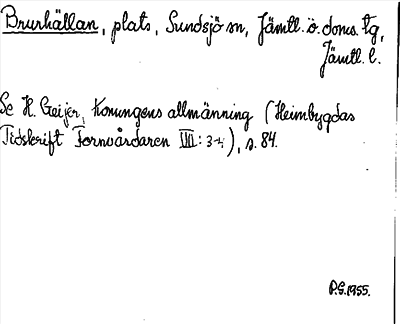 Brurhällan, plats, Sundsjö sn, Jämtl. ö. doms. tg,
Jämtl. l.
Se H. Geijer, Konungens allmänning (Heimbygdas
Tidskrift Fornvårdaren VIII: 3-4), s. 84.
P.G. 1955.